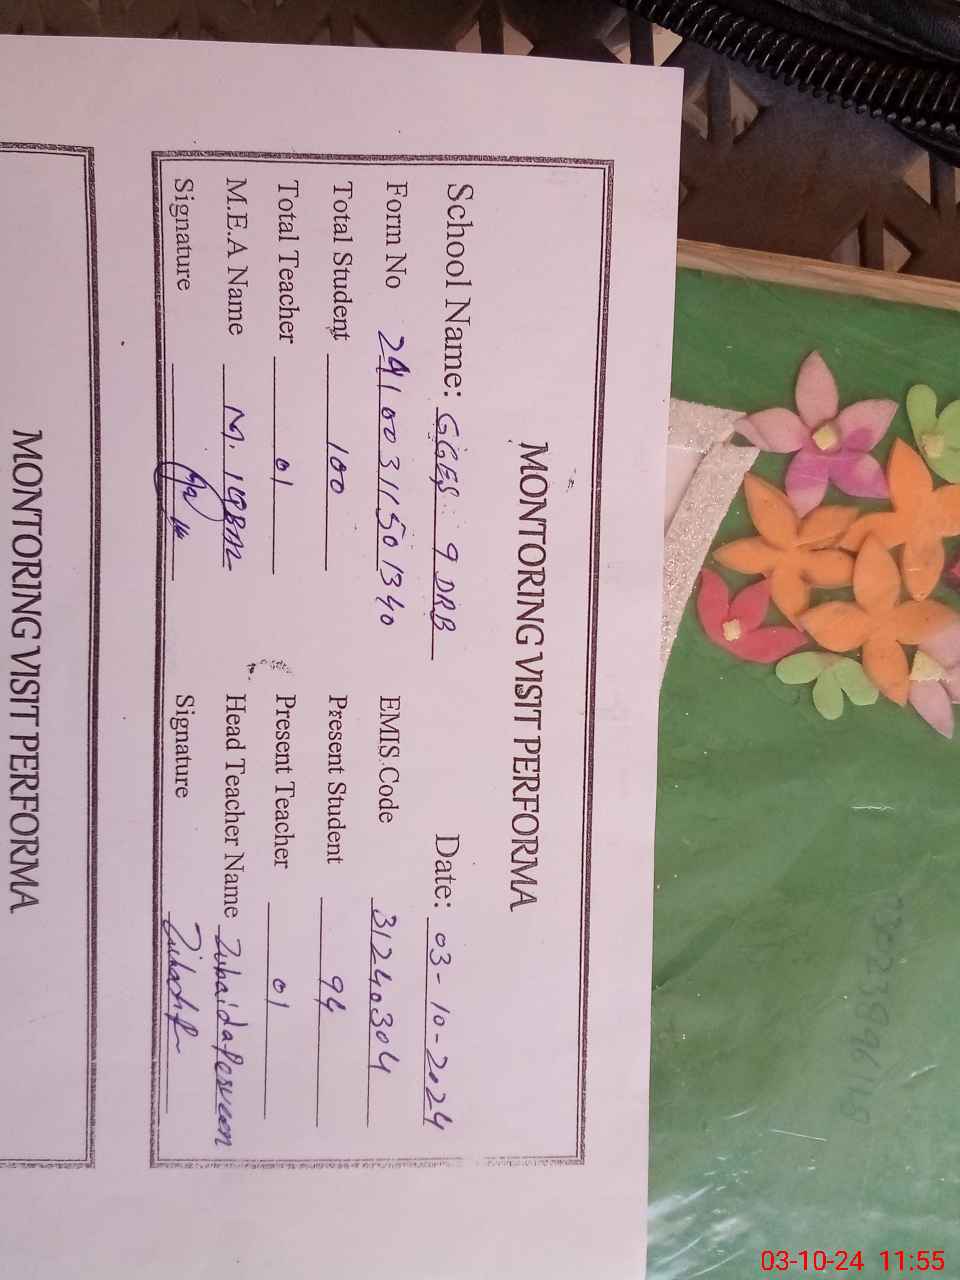 MONTORING VISIT PERFORMA
School Name: GGES 9 DRB Date: 03-10-2024
Form No 24100311501340 EMIS Code 31240304
Total Student 100 Present Student 94
Total Teacher 01 Present Teacher 01
M.E.A Name M. IQBAL Head Teacher Name Zubaida Perveen
Signature Signature
MONTORING VISIT PERFORMA
03-10-24 11:55